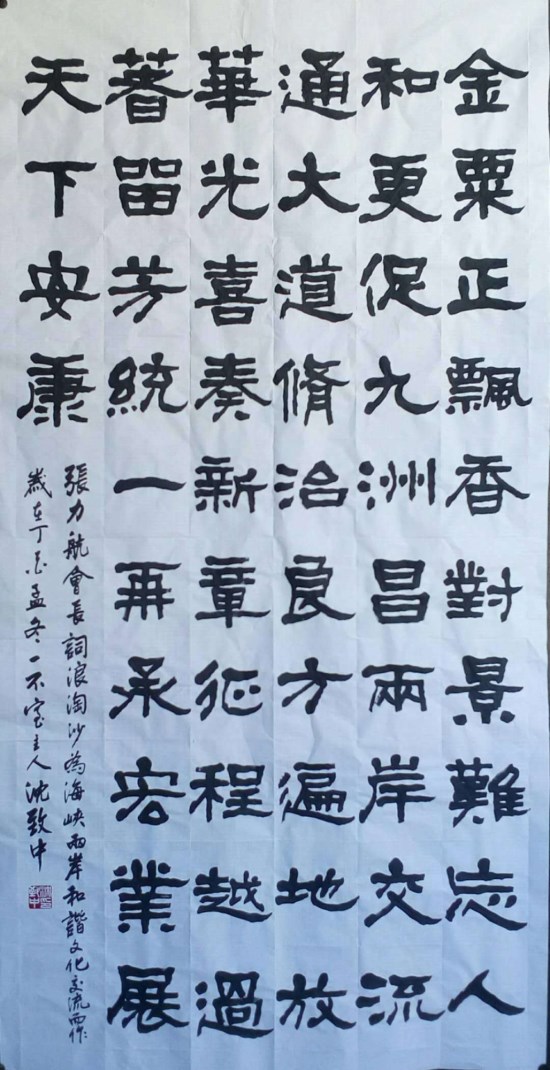 金粟正飄香對景難忘人
和更促九洲昌兩岸交流
通大道脩治良方遍地放
華光喜奏新章征程越過
著留芳統一再承宏業展
天下安康
張力航會長詞浪淘沙為海峽兩岸和諧文化交流而作
歲在丁酉孟冬一不室主人沈致中